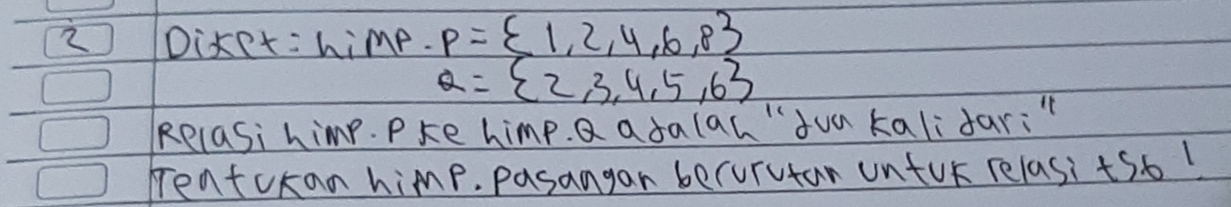 2 Diket: himp. P = {1, 2, 4, 6, 8}
Q = {2, 3, 4, 5, 6}
Relasi himp. P ke himp. Q adalah "dua kali dari"
Tentukan himp. pasangan berurutan untuk relasi tsb!